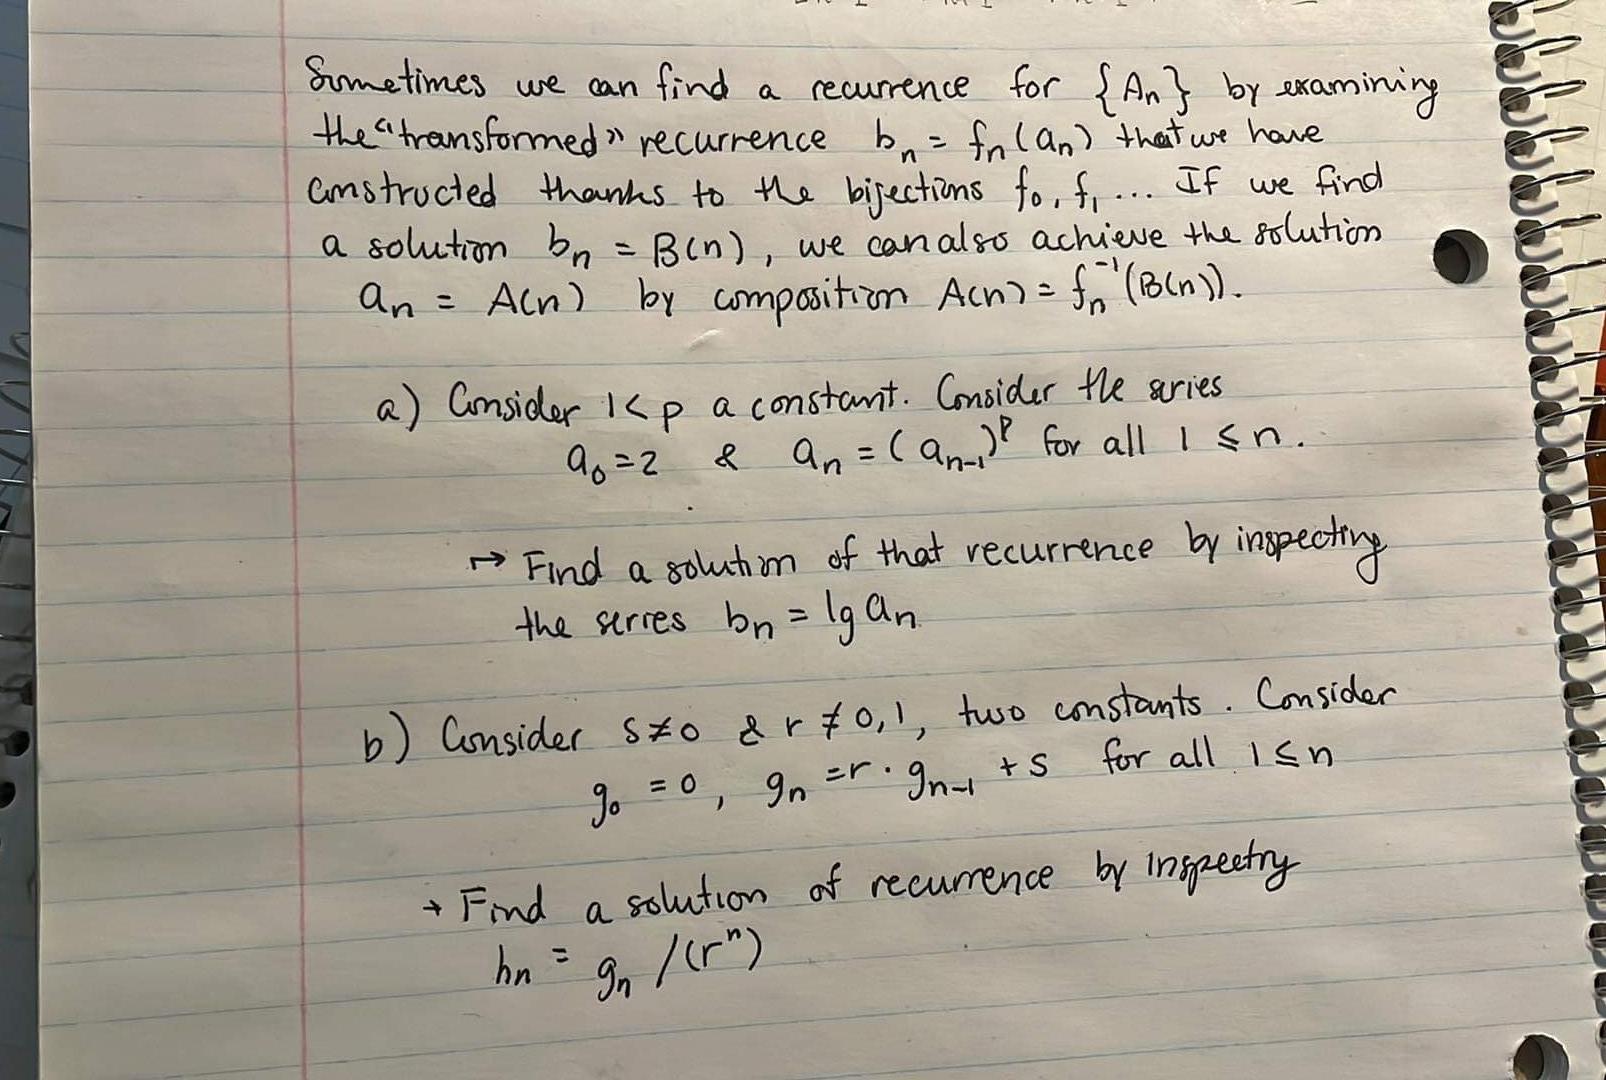 Sometimes we can find a recurrence for {An} by examining
the "transformed" recurrence bn = fn(an) that we have
constructed thanks to the bijections f0, f1 ... If we find
a solution bn = B(n), we can also achieve the solution
an = A(n) by composition A(n) = fn⁻¹(B(n)).
a) Consider 1<p a constant. Consider the series
a0=2 & an = (an-1)ᵖ for all 1 ≤ n.
↦ Find a solution of that recurrence by inspecting
the series bn = lg an
b) Consider s≠0 & r≠0,1, two constants. Consider
g0 = 0, gn =r · gn-1 + s for all 1≤n
→ Find a solution of recurrence by inspecting
hn = gn /(rⁿ)